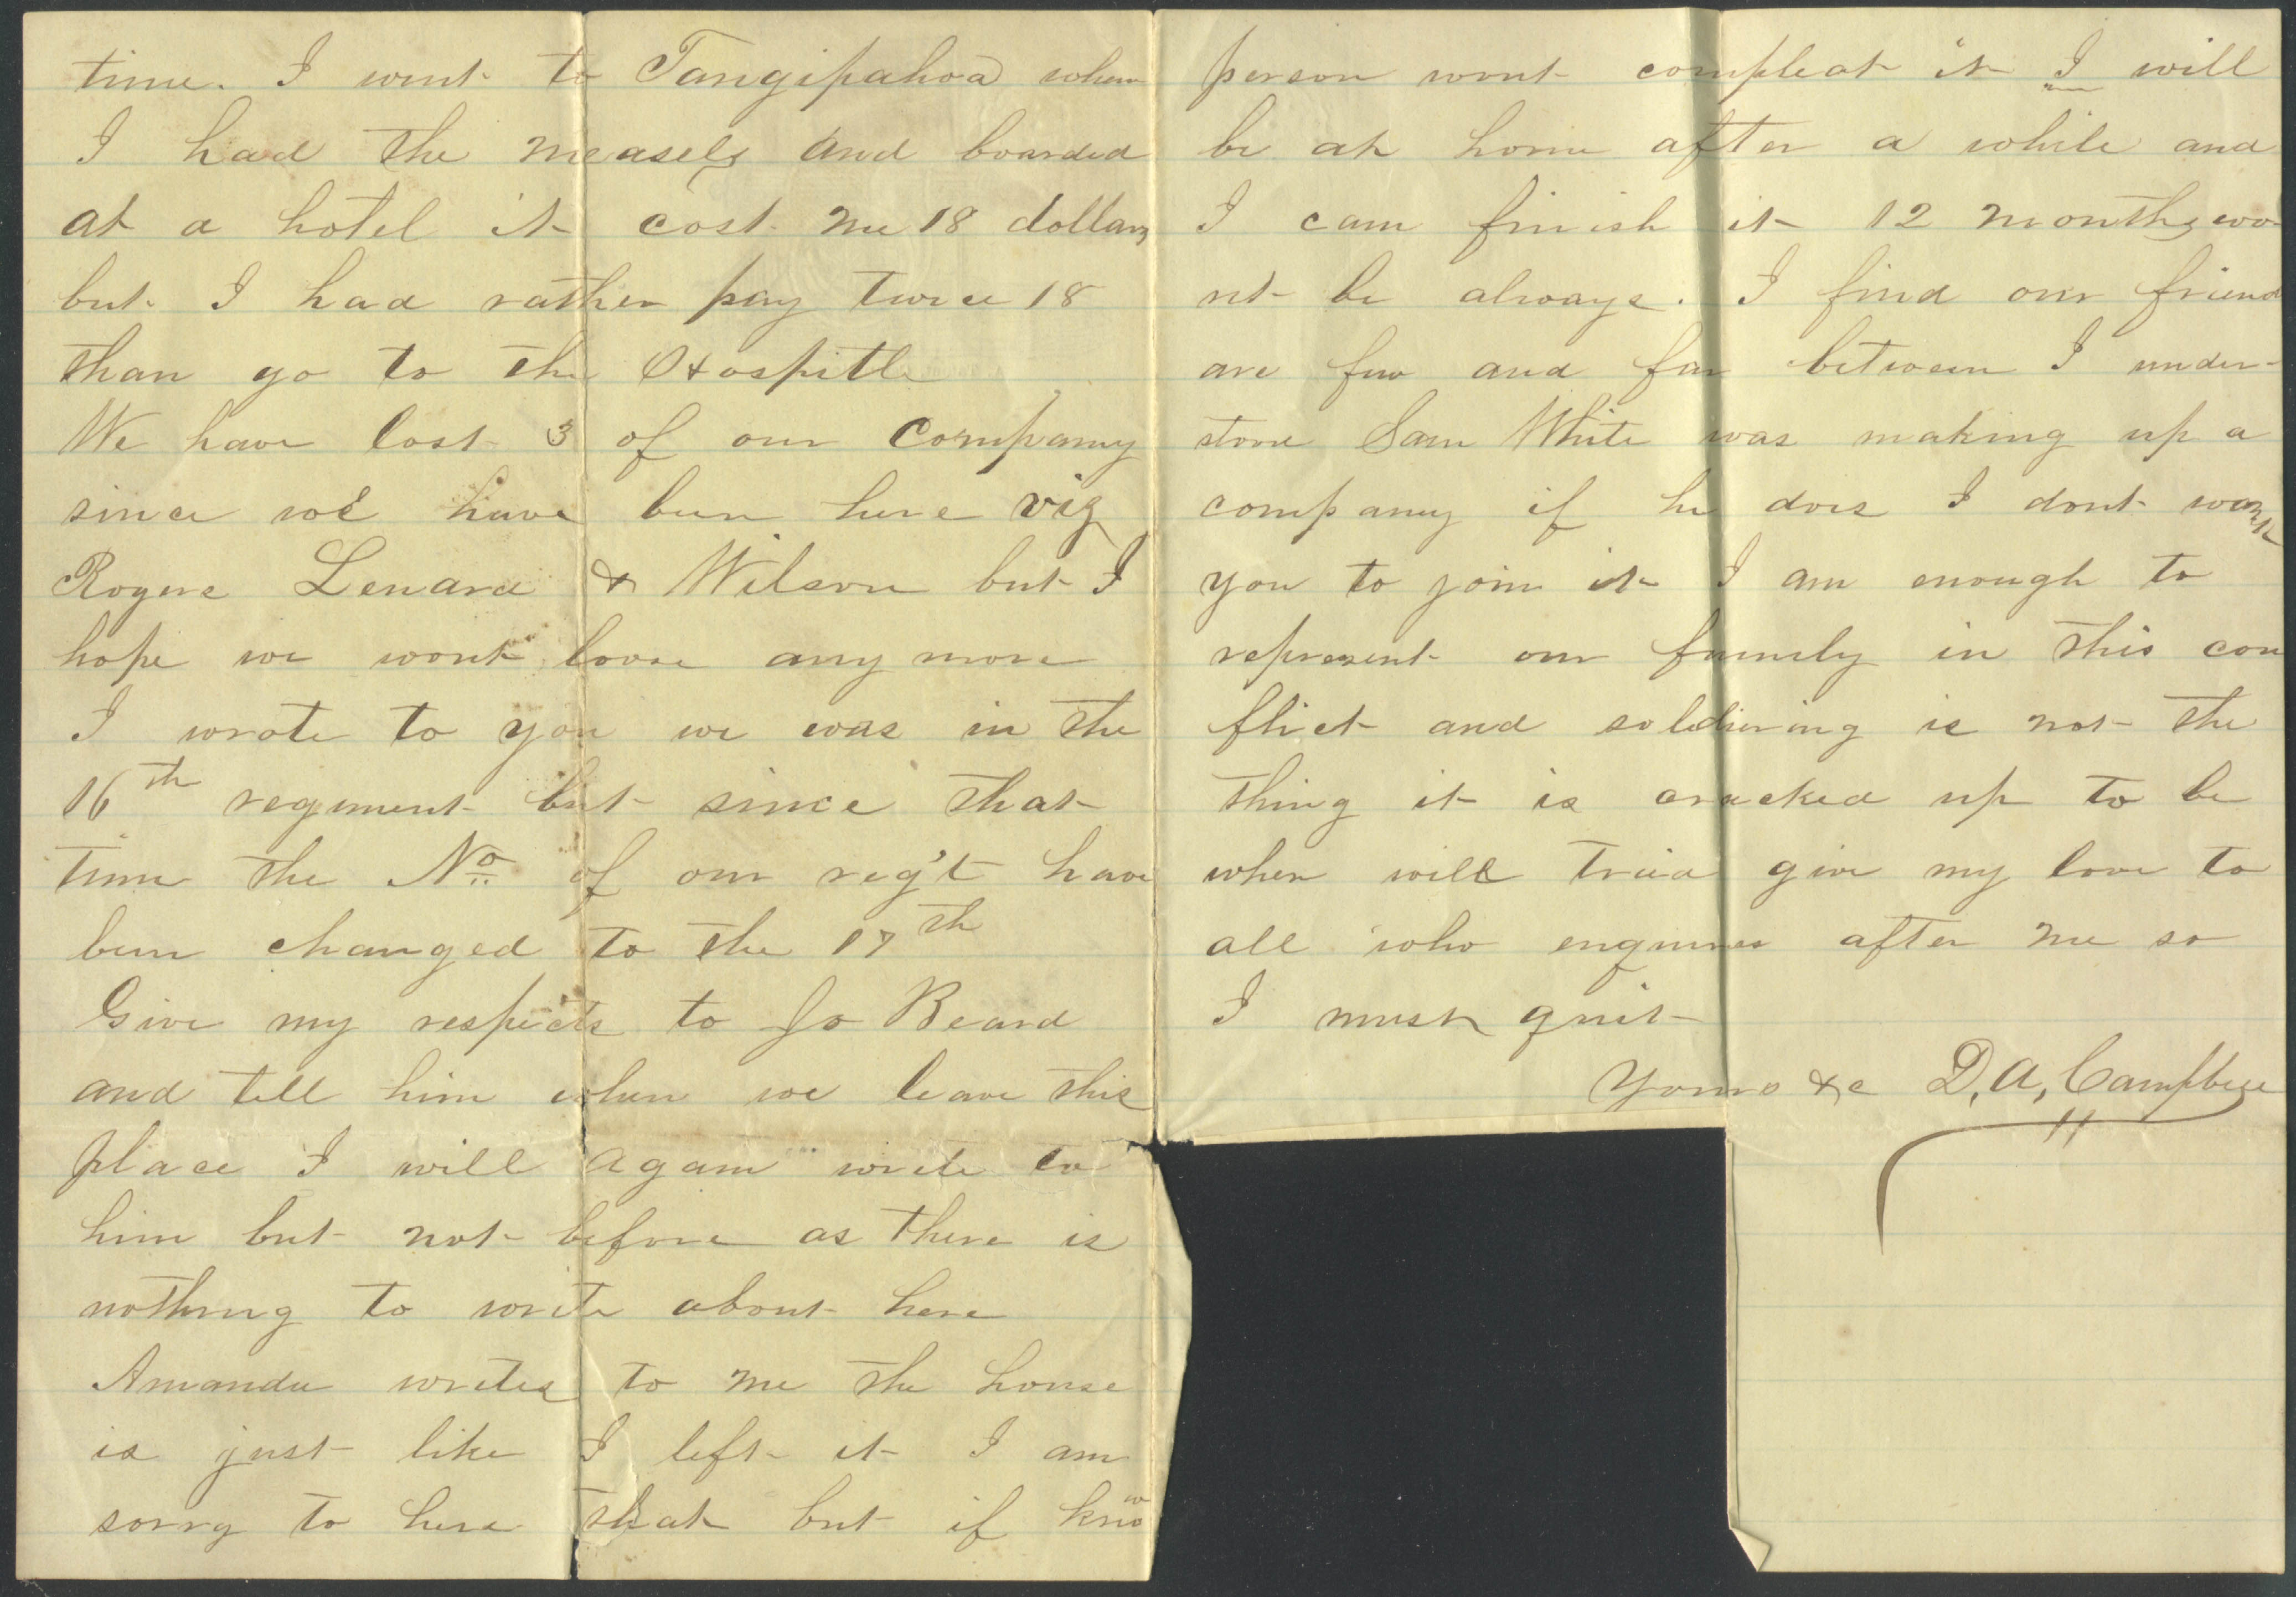 time. I went to Tangipahoa when
I had the measels and boarded
at a hotel it cost me 18 dollars
but I had rather pay twice 18
than go to the Hospitle
We have lost 3 of our company
since we have been here viz
Rogers Lenard & Wilson but I
hope we wont loose any more
I wrote to you we was in the
16th regiment but since that
time the No of our reg't have
been changed to the 17th
Give my respects to Jo Beard
and tell him when we leave this
place I will again write to
him but not before as there is
nothing to write about here
Amanda writes to me the house
is just like I left it I am
sorry to here that but if know
person wont compleat it I will
be at home after a while and
I cam finish it 12 months wo-
nt be always. I find our friend
are few and far between I under-
stone Sam White was making up a
company if he does I dont want
you to join it I am enough to
represent our family in this con
flict and soldiering is not the
thing it is cracked up to be
when will tried give my love to
all who enquires after me so
I must quit
Yours &c D, A, Campbell